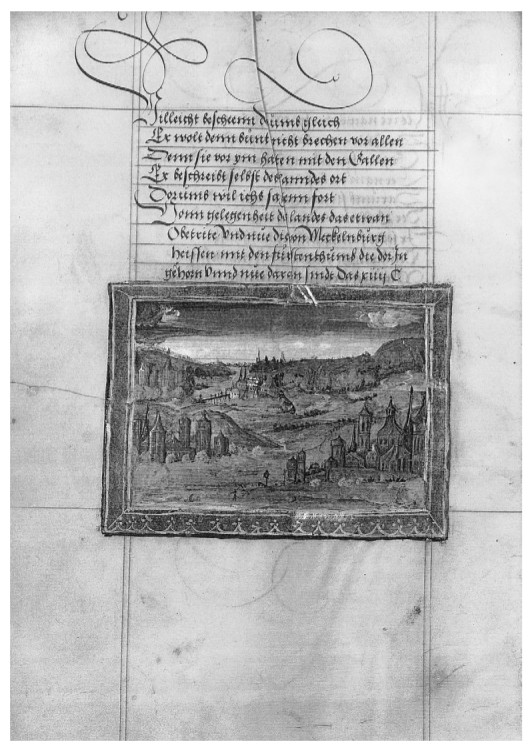 Villeicht bescheen dums gluch
Er wolt denn bunt nicht brechen vor allen
Denn sie vor ym haten mit den Gallen
Er beschreibt selbst des anndes ort
Dorums wil ichs sagenn fort
Vonn gelegenheit da landes das etwan
Obetrite vnd nue die von Meckelnburg
heissen mit den furstenthums die dor Jn
gehorn vnnd nue daran sindt Das xiiij C